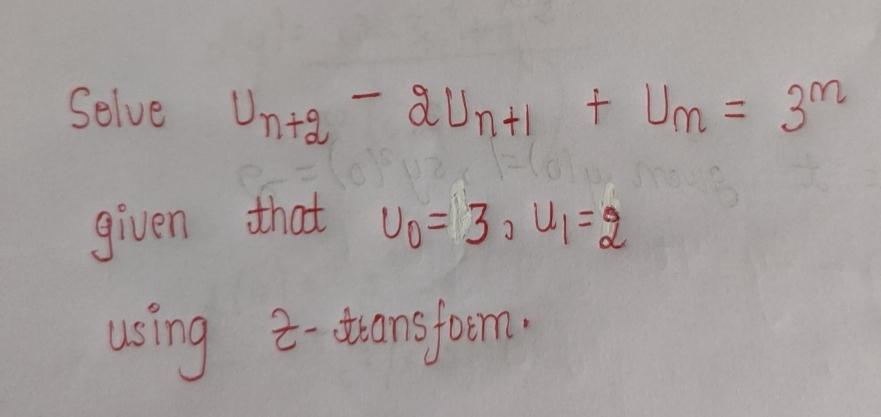 Solve U_{n+2} - 2U_{n+1} + U_n = 3^n
given that U_0 = 3, U_1 = 2
using z-transform.